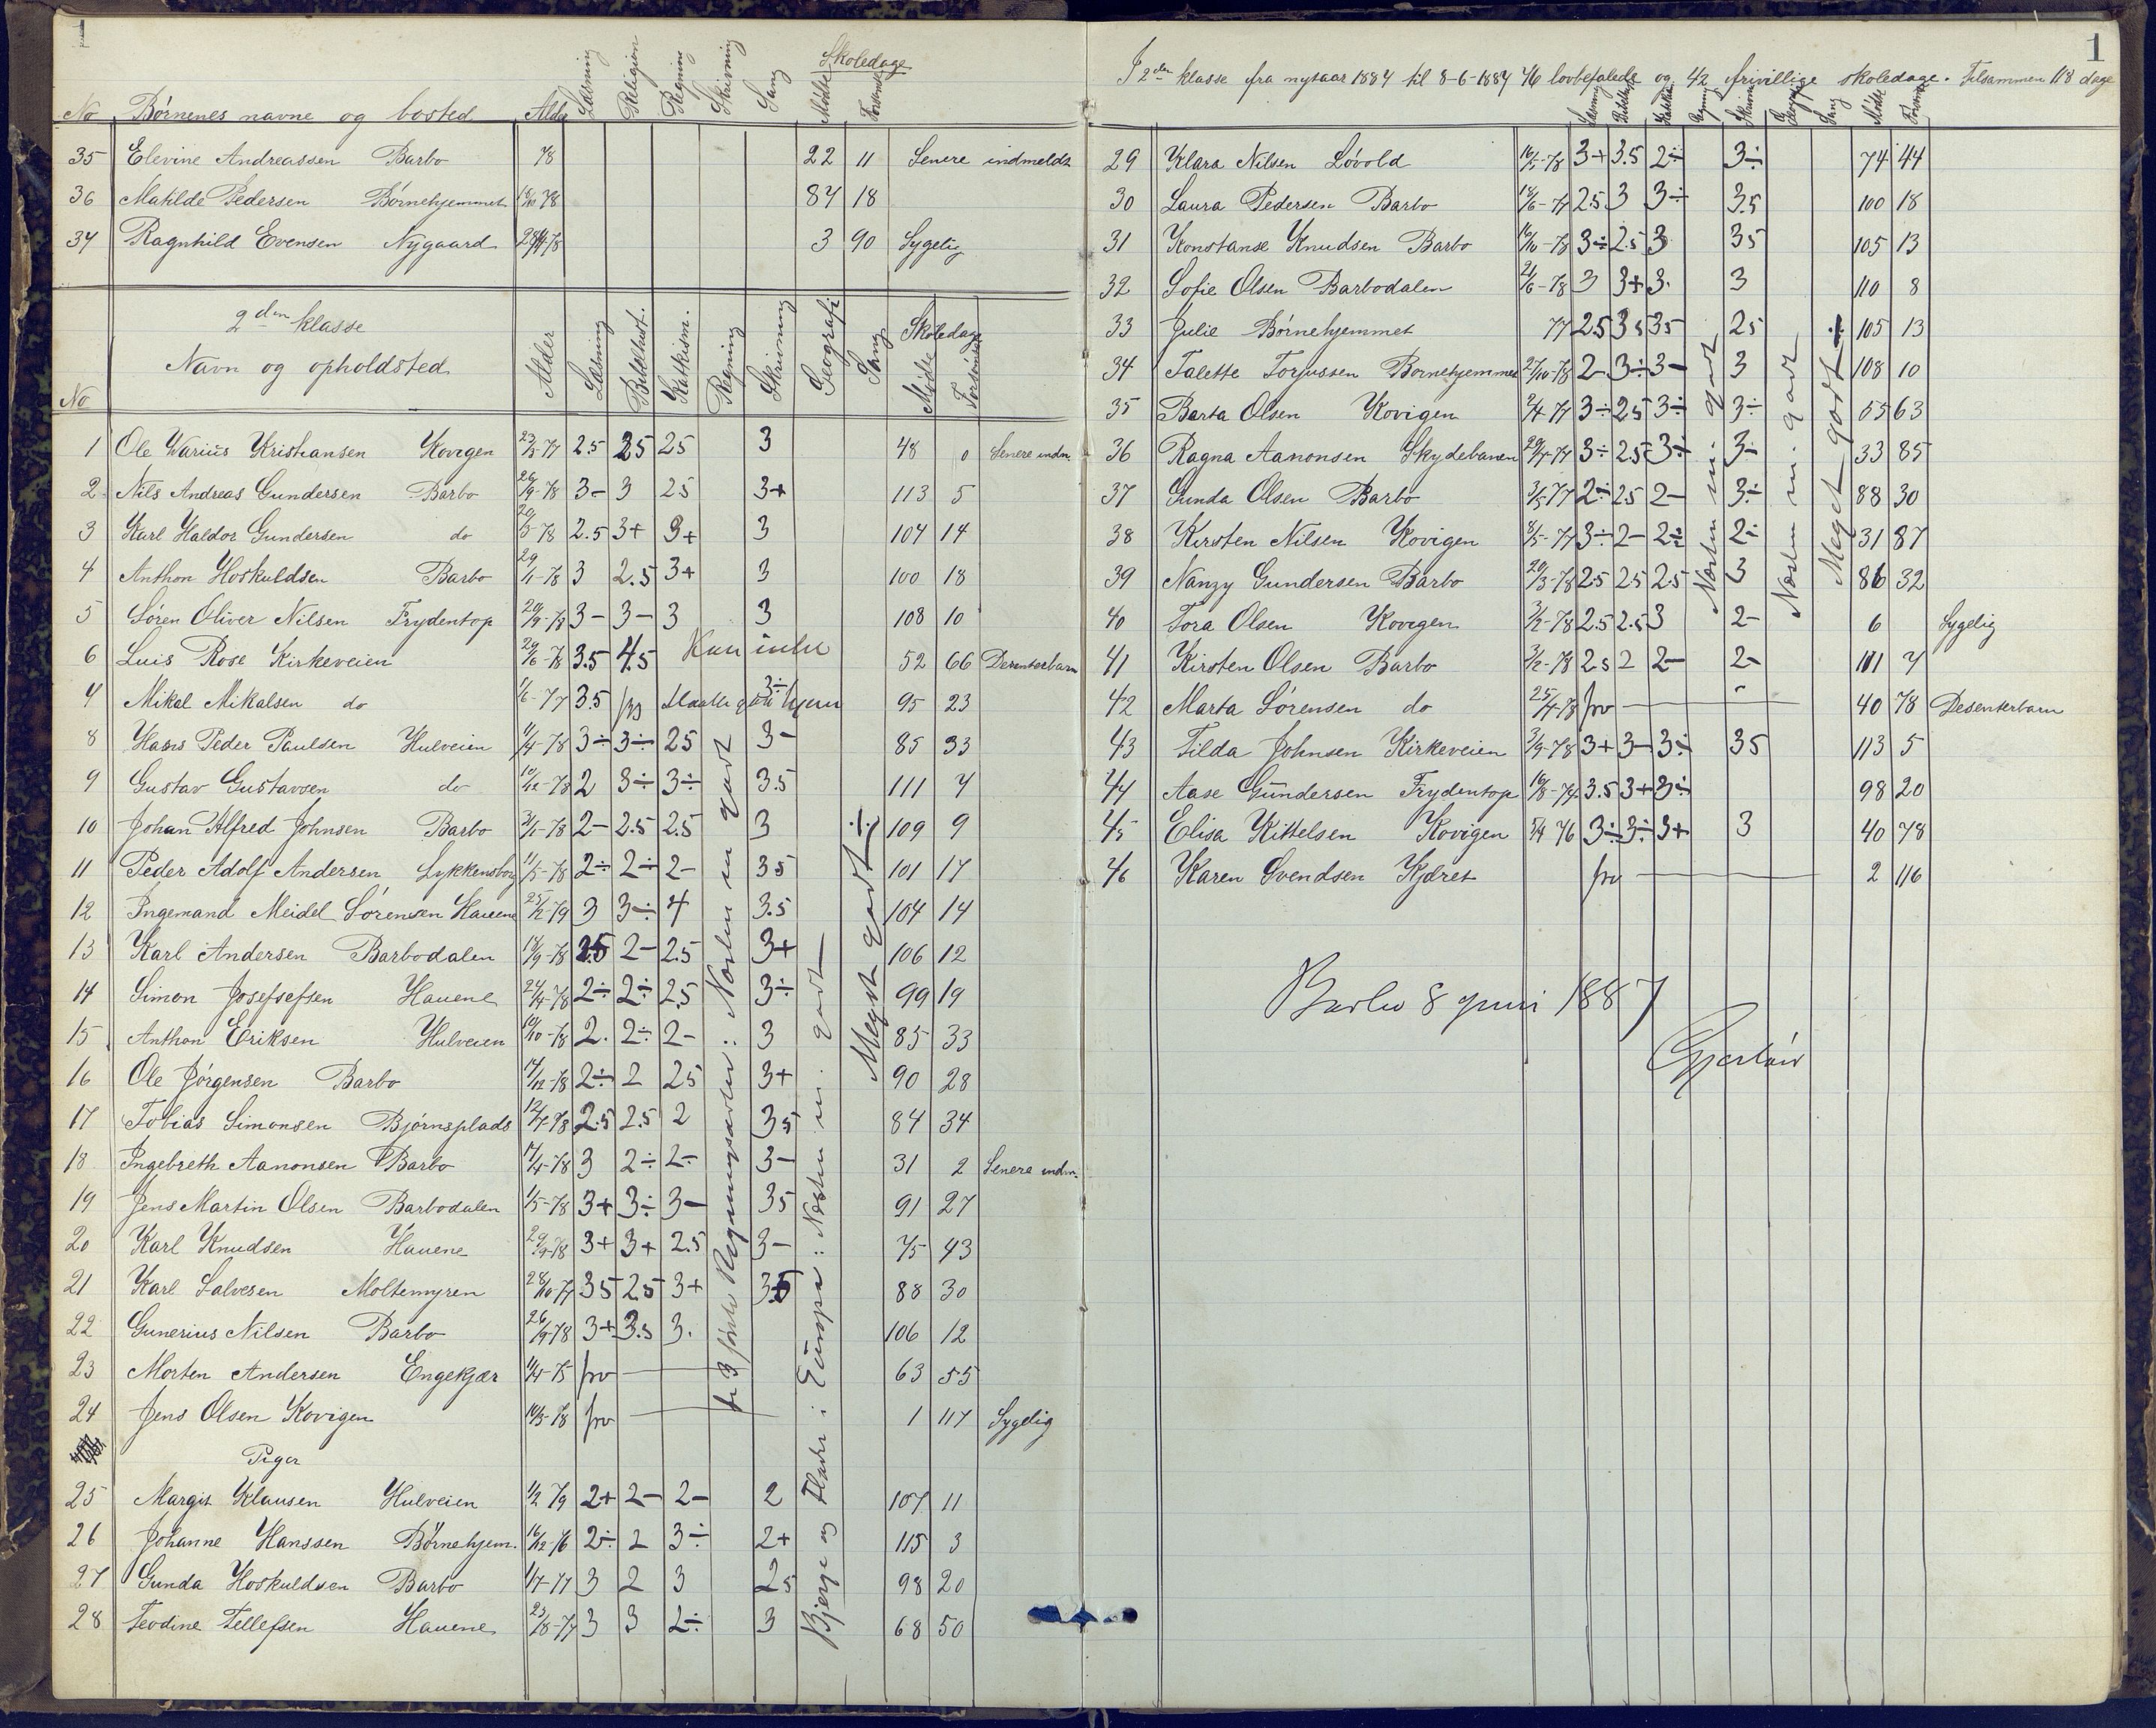 1
Skoledage
No Børnenes navne og bosted Alder Læsning Religion Regning Skrivning Sang Mødte Forsømte
35 Elevine Andreassen Barbo 78 22 11 Senere indmeldt
36 Matilde Pedersen Børnehjemmet 78 87 18
37 Ragnhild Evensen Nygaard 78 3 90 Sygelig
2den klasse
Navn og opholdsted
No Alder Læsning Bibelhist. Katkism. Regning Skrivning Geografi Sang Skoledage Mødte Forsømte
1 Ole Marius Kristiansen Kovigen 23/3-77 2.5 25 25 3 48 0 Senere indm.
2 Nils Andreas Gundersen Barbo 26/9-78 3- 3 25 3+ 113 5
3 Karl Haldor Gundersen do 78 2.5 3+ 3+ 3 104 14
4 Anthon Hoskuldsen Barbo 29/11-78 3 2.5 3+ 3 100 18
5 Søren Oliver Nilsen Frydentop 78 3- 3- 3 3 108 10
6 Luis Rose Kirkeveien 29/6-78 3.5 4.5 Kun inde 52 66 Desenterbarn
7 Mikal Mikalsen do 1/6-77 3.5 3÷ 95 23
8 Hans Peder Paulsen Hulveien 11/4-78 3÷ 3÷ 25 3- 85 33
9 Gustav Gustavsen do 10/12-78 2 3÷ 3÷ 3.5 111 7
10 Johan Alfred Johnsen Barbo 3/1-78 2- 2.5 2.5 3 109 9
11 Peder Adolf Andersen Lykkensborg 11/5-78 2÷ 2÷ 2- 35 101 17
12 Ingemand Meidel Sørensen Hauene 25/2-79 3 3÷ 4 3.5 104 14
13 Karl Andersen Barbodalen 18/9-78 2.5 2- 2.5 3+ 106 12
14 Simon Josefsefsen Hauene 24/4-78 2÷ 2÷ 2.5 3÷ 99 19
15 Anthon Eriksen Hulveien 10/10-78 2. 2÷ 2- 3 85 33
16 Ole Jørgensen Barbo 17/12-78 2÷ 2 25 3+ 90 28
17 Tobias Simonsen Bjørnsplads 78 2.5 2.5 2 35 84 34
18 Ingebreth Aanonsen Barbo 17/4-78 3 2÷ 2- 3- 31 2 Senere indm.
19 Jens Martin Olsen Barbodalen 1/5-78 3+ 3÷ 3- 35 91 27
20 Karl Knudsen Hauene 78 3+ 3+ 2.5 3- 75 43
21 Karl Salvesen Moltemyren 28/10-77 35 25 3+ 35 88 30
22 Gunerius Nilsen Barbo 26/9-78 3+ 3.5 3. 106 12
23 Morten Andersen Engekjær 11/4-75 frv 63 55
24 Jens Olsen Kovigen 78 frv 1 117 Sygelig
Piger
25 Margit Klausen Hulveien 1/2 79 2+ 2- 2- 2 107 11
26 Johanne Hanssen Børnehjem. 16/12-76 2÷ 2 3÷ 2+ 115 3
27 Gunda Hoskuldsen Barbo 1/7-77 3 2 3 25 98 20
28 Teodine Tellefsen Hauene 23/8-77 3 3 2÷ 3 68 50
de 3 første Regningsarter: Næsten m godt
Bjerge og Floder i Europa: Næsten m. godt
Meget godt ·/·
1
I 2den klasse fra nytaar 1887 til 8-6-1887 76 lovbefalede og 42 frivillige skoledage. Tilsammen 118 dage
Læsning Bibelhist Katekis Regning Skrivning Geografi Sang Mødte Forsømte
29 Klara Nilsen Løvold 16/5-78 3+ 3.5 2÷ 3÷ 74 44
30 Laura Pedersen Barbo 18/6-77 2.5 3 3÷ 3.5 100 18
31 Konstanse Knudsen Barbo 16/10-78 3÷ 2.5 3 35 105 13
32 Sofie Olsen Barbodalen 21/6-78 3 3+ 3. 3 110 8
33 Julie Børnehjemmet 77 25 35 35 25 105 13
34 Talette Torjussen Børnehjemmet 27/10-78 2- 3÷ 3- 3 108 10
35 Barta Olsen Kovigen 2/4 77 3÷ 25 3÷ 3÷ 55 63
36 Ragna Aanonsen Skydebanen 77 3÷ 2.5 3÷ 3÷ 33 85
37 Gunda Olsen Barbo 3/5 77 2÷ 25 2- 3÷ 88 30
38 Kirsten Nilsen Kovigen 8/5-77 3÷ 2- 2÷ 2÷ 31 87
39 Nanzy Gundersen Barbo 20/3-78 25 25 2.5 3 86 32
40 Tora Olsen Kovigen 3/12-78 2.5 2.5 3 2- 6 Sygelig
41 Kirsten Olsen Barbo 3/12-78 25 2 2- 2- 111 7
42 Marta Sørensen do 25/4-78 frv 40 78 Desenterbarn
43 Tilda Johnsen Kirkeveien 3/9-78 3+ 3- 3÷ 35 113 5
44 Aase Gundersen Frydentop 16/8-74 3.5 3+ 3÷ 98 20
45 Elisa Kittelsen Kovigen 5/4 76 3÷ 3÷ 3+ 3 40 78
46 Karen Svendsen Kjæret frv 2 116
Næsten m. godt
Næsten m. godt
Meget godt ·/·
Barbo 8 juni 1887